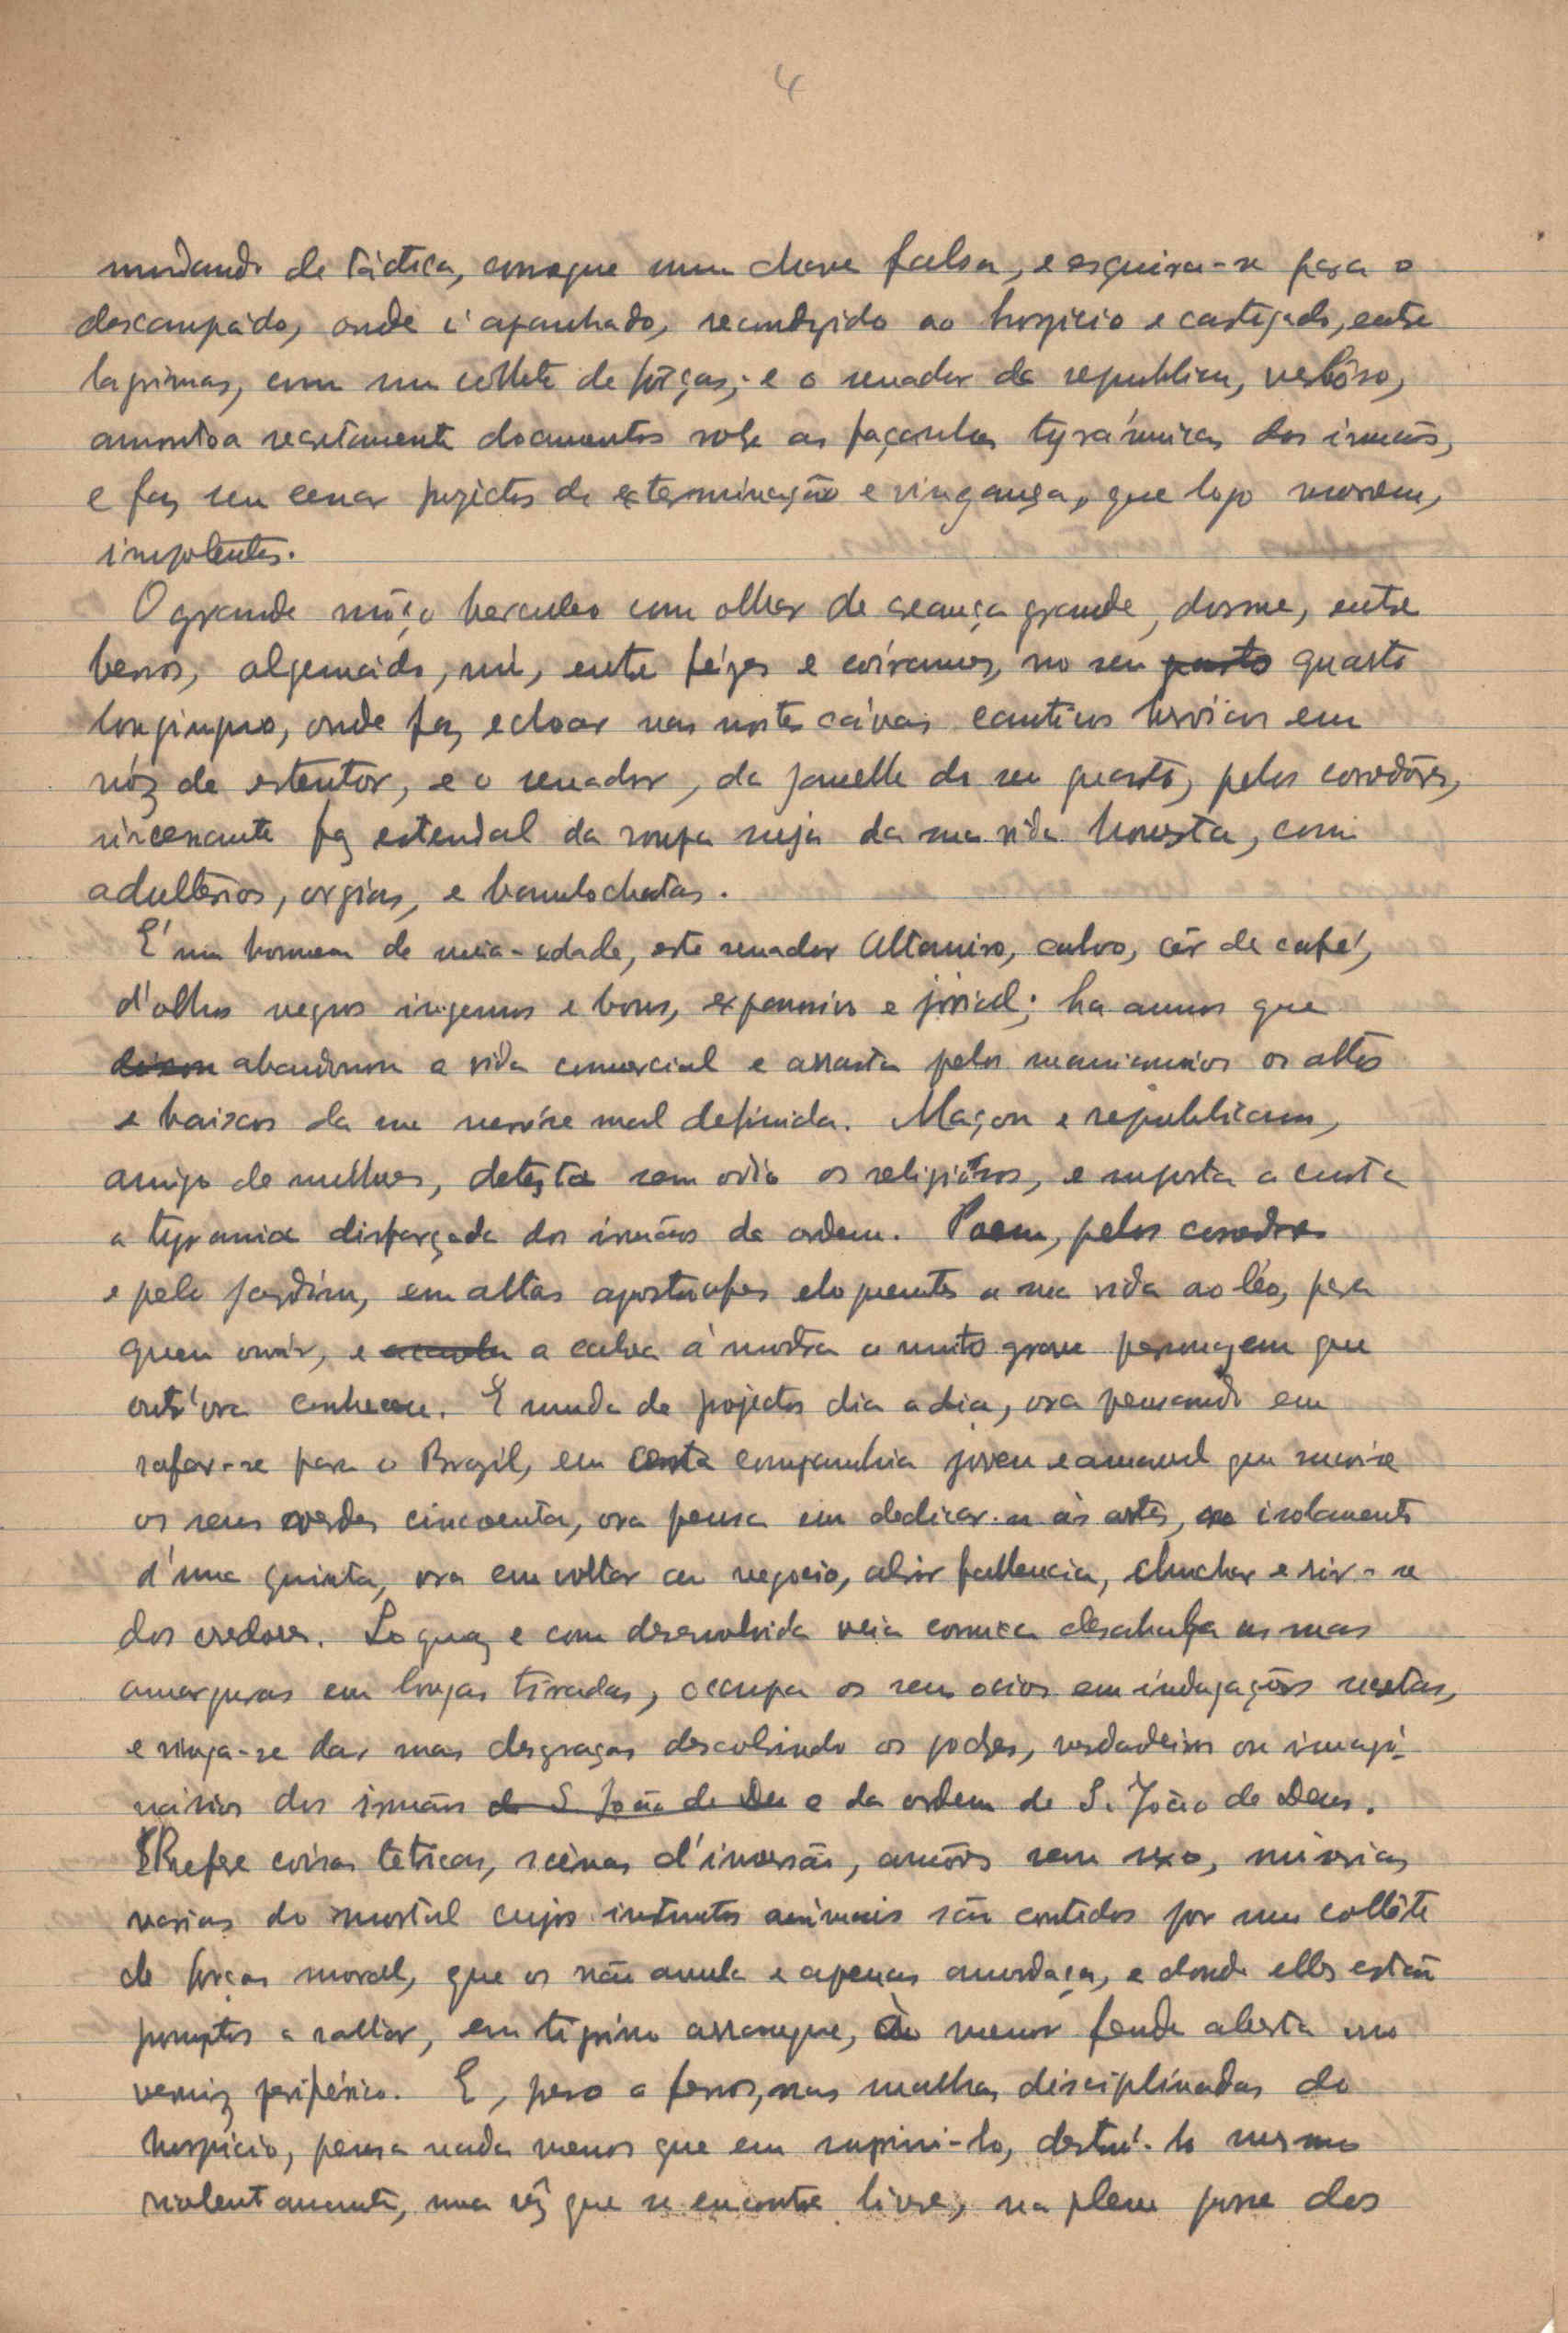 4
mudando de táctica, consegue uma chave falsa, e esquiva-se para o
descampádo, onde é apanhado, reconduzido ao hospicio e castigado, entre
lagrimas, com um collete de fôrças; e o senador da republica, verbôso,
amontoa secretamente documentos sobre as façanhas tyránnicas dos irmãos,
e faz sem cessar projectos de exterminação e vingança, que logo morrem,
impotentes.
O grande môço herculeo com olhar de creança grande, dorme, entre
berros, algemádo, nú, entre fézes e coiramos, no seu quarto
longinquo, onde faz echoar nas noites cálvas canticos heroicos em
vóz de estentor, e o senador, da janella do seu quarto, pelos corredôres,
incessante faz estendal da roupa suja da sua vida honesta, com
adultérios, orgias, e bambochatas.
É um homem de meia-edade, este senador Altamiro, calvo, côr de café,
d'olhos negros ingenuos e bons, expansivo e jovial; ha annos que
abandonou a vida comercial e arrasta pelos manicomios os altos
e baixos da sua nevróse mal definida. Maçon e republicano,
amigo de mulheres, detesta sem odio os religiosos, e suporta a custo
a tyrannia disfarçada dos irmãos da ordem. Poem, pelos corredores
e pelo jardim, em altas apostrophes eloquentes a sua vida ao léo, para
quem ouvir, e a calva á mostra a muito grave personagem que
outr'ora conheceu. E muda de projectos dia a dia, ora pensando em
safar-se para o Brazil, em certa companhia joven e amavel que suavise
os seus verdes cincoenta, ora pensa em dedicar-se ás artes, no isolamento
d'uma quinta, ora em voltar ao negocio, abrir fallencia, chuchar e rir-se
dos credores. Loquaz e com desenvolvida veia comica desabafa as suas
amarguras em longas tiradas, occupa os seus ocios em indagações secretas,
e vinga-se das suas desgraças descobrindo os podres, verdadeiros ou imagi-
nários dos irmãos <s>de S. João de Deus</s> e da ordem de S. João de Deus.
Refere coisas tétricas, scênas d'inversão, amôres sem sexo, miserias
varias do mortal cujos instintos animais são contidos por um collête
de forças moral, que os não anula e apenas amordaça, e donde elles estão
promptos a saltar, em tigrino arranque, ao menor fenda aberta no
verniz periférico. E, preso a ferros, nas malhas disciplinadas do
hospicio, pensa nada menos que em suprimi-lo, destruí-lo mesmo
violentamente, uma vêz que se encontre livre, na plena posse dos